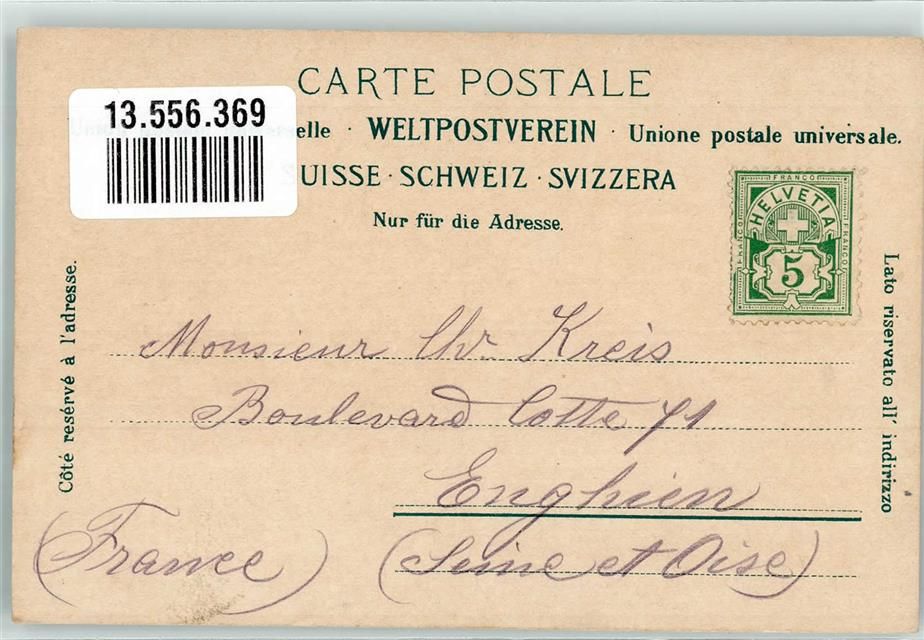 CARTE POSTALE
13.556.369
elle · WELTPOSTVEREIN · Unione postale universale.
SUISSE · SCHWEIZ · SVIZZERA
Nur für die Adresse.
FRANCO
HELVETIA
FRANCO
FRANCO
5
Côté resérvé à l'adresse.
Lato riservato all' indirizzo
Monsieur Chr. Kreis
Boulevard Cotte 71
Enghien
(France) (Seine et Oise)